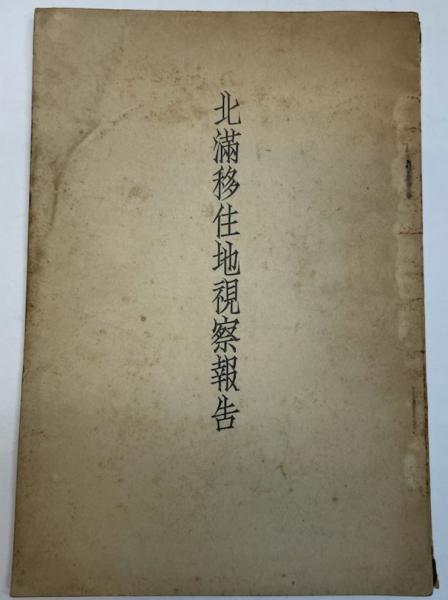 北滿移住地視察報告